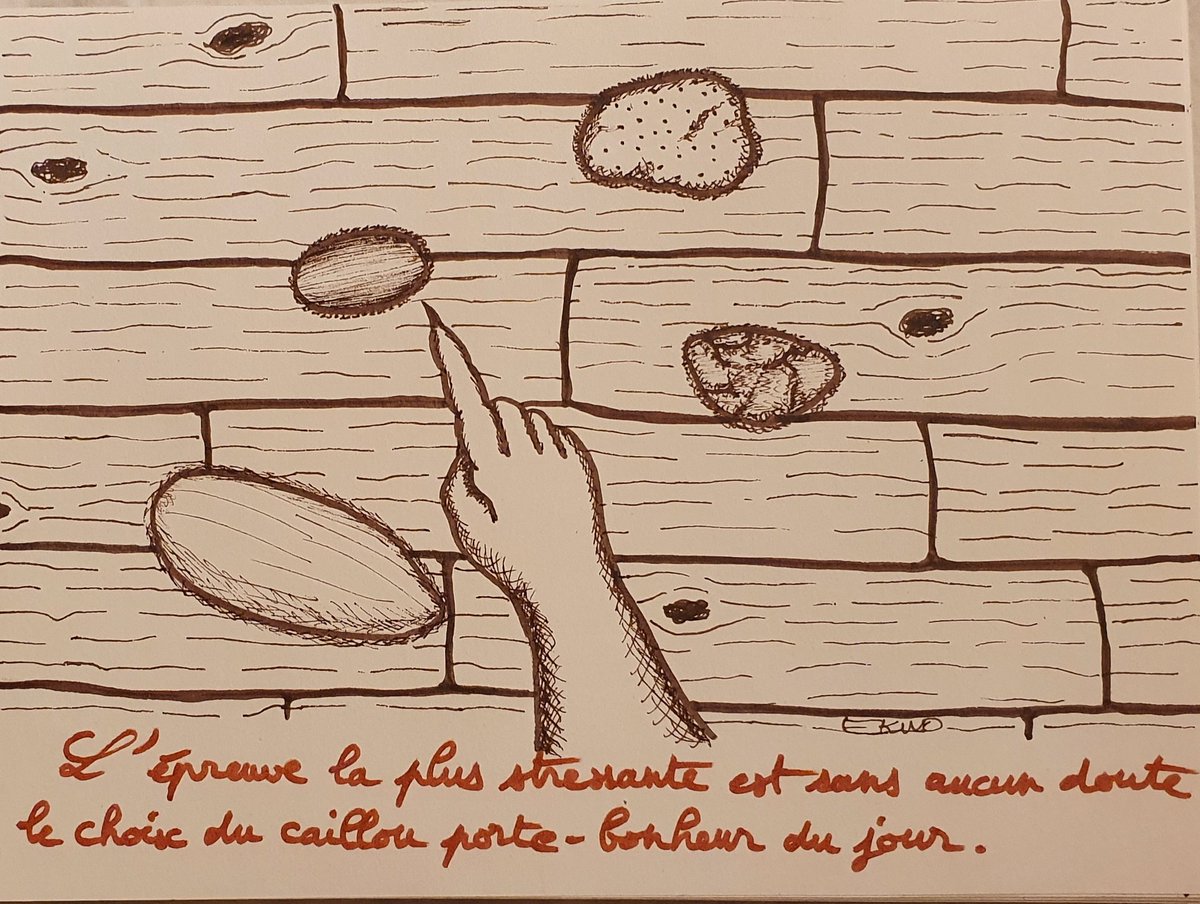 EKUO
L'épreuve la plus stressante est sans aucun doute
le choix du caillou porte-bonheur du jour.